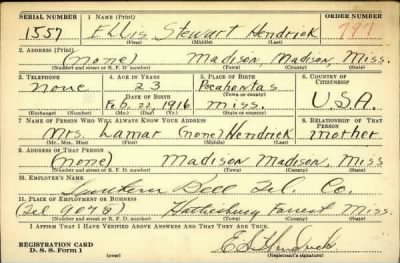 SERIAL NUMBER 1. NAME (Print) ORDER NUMBER
1557 Ellis Stewart Hendrick 797
(First) (Middle) (Last)
2. ADDRESS (Print)
(none) Madison, Madison, Miss.
(Number and street or R. F. D. number) (Town) (County) (State)
3. TELEPHONE 4. AGE IN YEARS 5. PLACE OF BIRTH 6. COUNTRY OF CITIZENSHIP
none 23 Pocahontas
DATE OF BIRTH (Town or county)
Feb. 22, 1916 Miss. U.S.A.
(Mo.) (Day) (Yr.) (State or country)
7. NAME OF PERSON WHO WILL ALWAYS KNOW YOUR ADDRESS 8. RELATIONSHIP OF THAT PERSON
Mrs. Lamar (none) Hendrick mother
(Mr., Mrs., Miss) (First) (Middle) (Last)
9. ADDRESS OF THAT PERSON
(none) Madison Madison, Miss
(Number and street or R. F. D. number) (Town) (County) (State)
10. EMPLOYER'S NAME
Southern Bell Tel. Co.
11. PLACE OF EMPLOYMENT OR BUSINESS
(Tel 9078) Hattiesburg Forrest Miss.
(Number and street or R. F. D. number) (Town) (County) (State)
I AFFIRM THAT I HAVE VERIFIED ABOVE ANSWERS AND THAT THEY ARE TRUE.
REGISTRATION CARD
D. S. S. Form 1 (Registrant's signature)